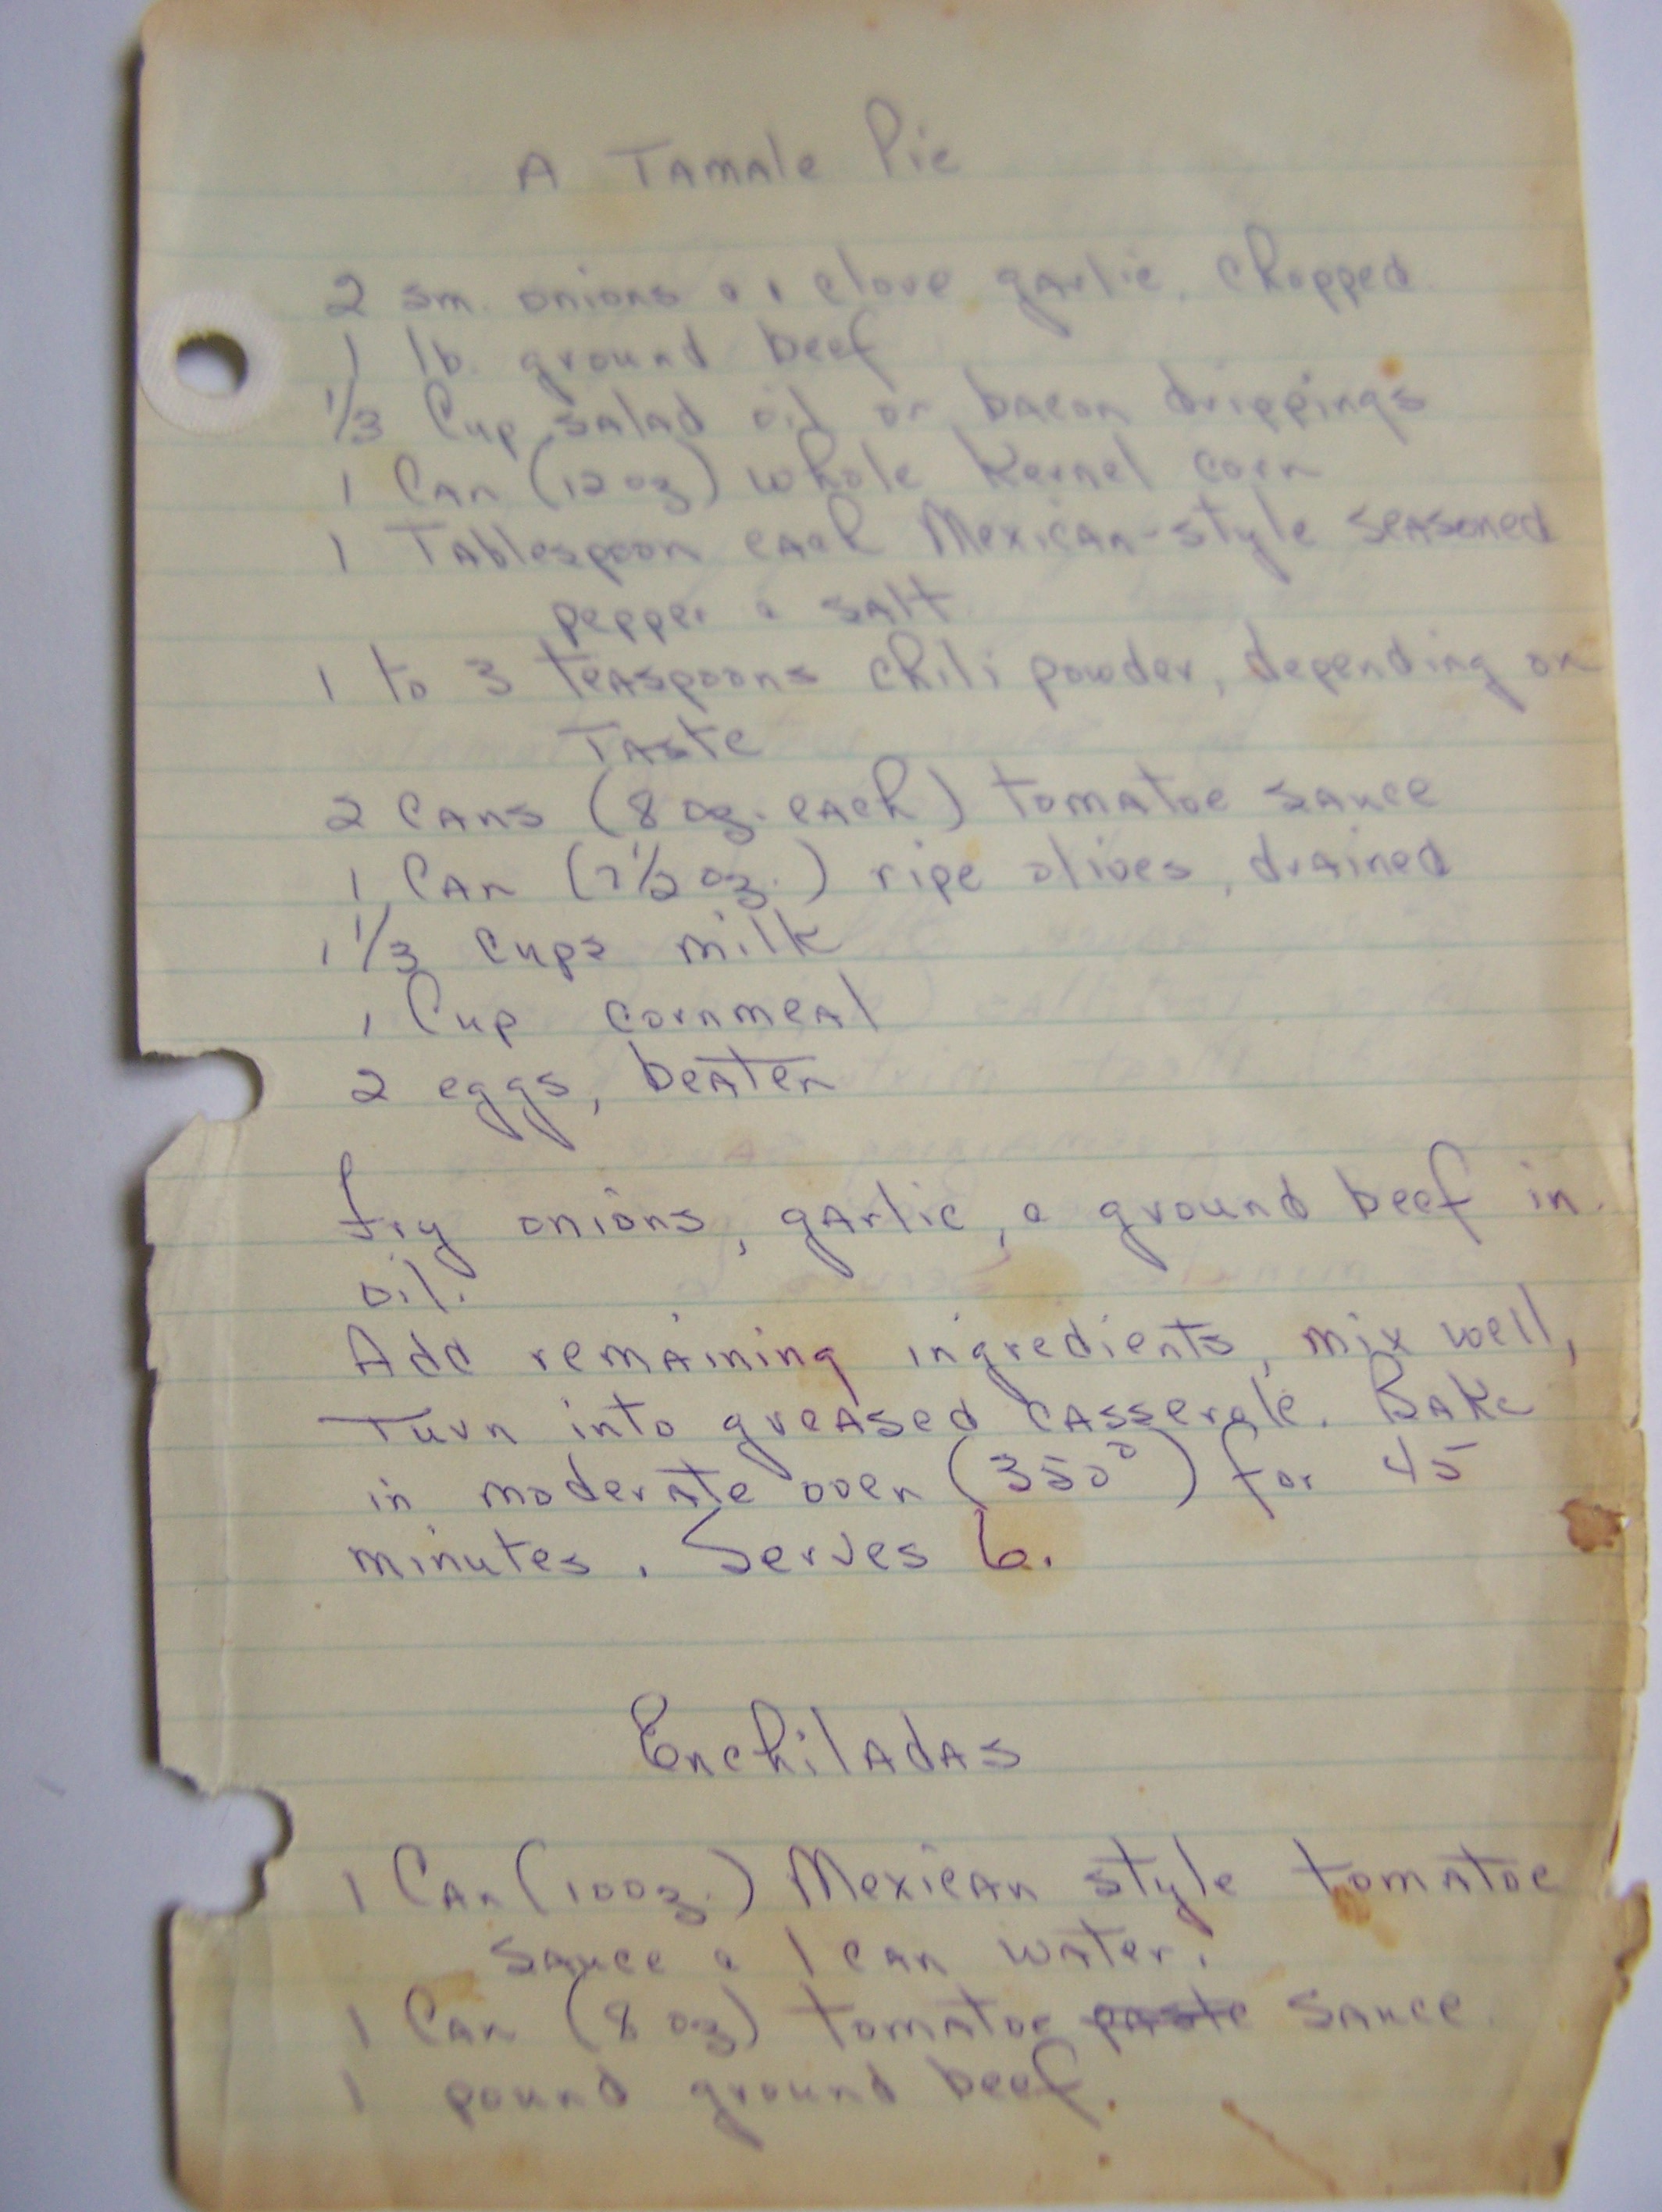 A Tamale Pie
2 sm. onions & 1 clove garlic, chopped
1 lb. ground beef
1/3 Cup salad oil or bacon drippings
1 Can (12 oz) whole kernel corn
1 Tablespoon each Mexican-style seasoned
pepper & salt
1 to 3 teaspoons chili powder, depending on
Taste
2 cans (8 oz. each) tomatoe sauce
1 Can (7 1/2 oz.) ripe olives, drained
1 1/3 cups milk
1 Cup cornmeal
2 eggs, beaten
fry onions, garlic, & ground beef in
oil.
Add remaining ingredients, mix well,
Turn into greased casserole. Bake
in moderate oven (350°) for 45
minutes. Serves 6.
Enchiladas
1 Can (10 oz.) Mexican style tomatoe
sauce & 1 can water.
1 Can (8 oz) tomatoe paste sauce.
1 pound ground beef.